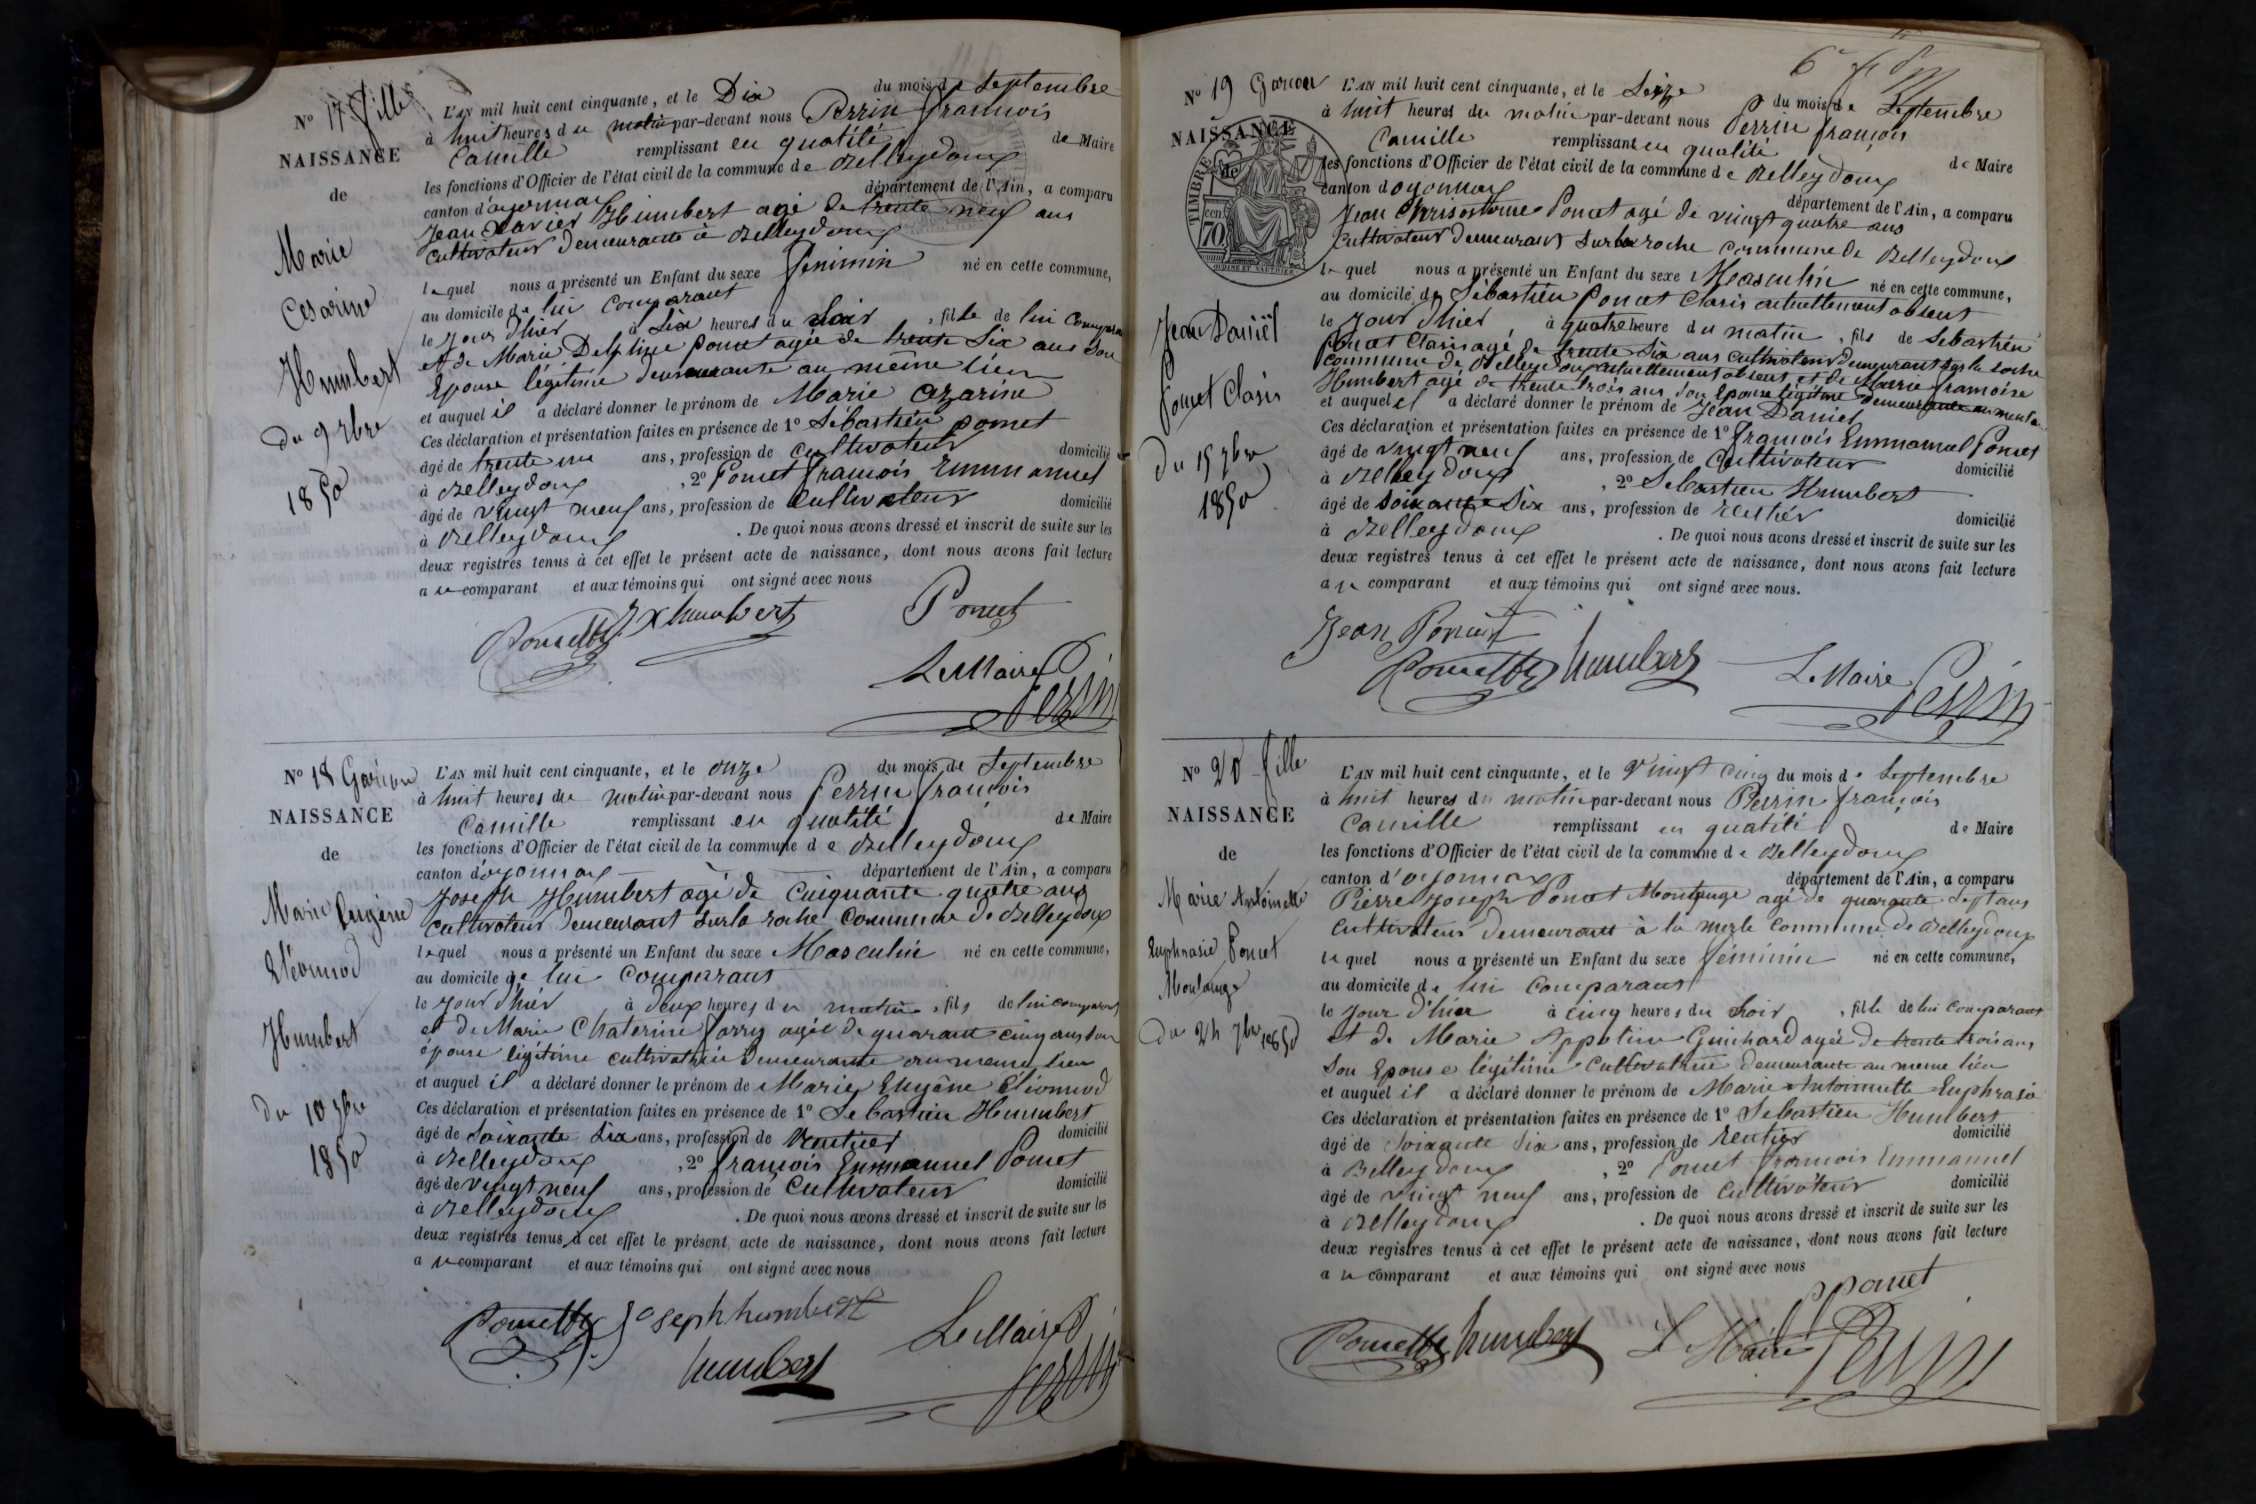 N° 17 fille
NAISSANCE
de
Marie
Cesarine
Humbert
Du 9 7bre
1850
L'AN mil huit cent cinquante, et le Dix du mois de Septembre
à huit heures du matin par-devant nous Perrin françois
Camille remplissant en qualité de Maire
les fonctions d'Officier de l'état civil de la commune de Belleydoux
canton d'oyonnax département de l'Ain, a comparu
Jean Xavier Humbert agé de trente neuf ans
cultivateur demeurante à Belleydoux
lequel nous a présenté un Enfant du sexe feminin né en cette commune,
au domicile de lui comparant
le jour d'hier à Six heures du Soir, fille de lui Comparant
et de Marie Delphine poncet agée de trente Six ans Son
Epouse légitime demeurante au même lieu
et auquel il a déclaré donner le prénom de Marie Cezarine
Ces déclaration et présentation faites en présence de 1° Sébastien poncet
âgé de trente un ans, profession de cultivateur domicilié
à Belleydoux, 2° Poncet françois Emmanuel
âgé de vingt neuf ans, profession de Cultivateur domicilié
à Belleydoux. De quoi nous avons dressé et inscrit de suite sur les
deux registres tenus à cet effet le présent acte de naissance, dont nous avons fait lecture
au comparant et aux témoins qui ont signé avec nous
Humbert Poncet
Le Maire Perrin
N° 18 Garçon
NAISSANCE
de
Marie Eugène
Léonnod
Humbert
Du 10 7bre
1850
L'AN mil huit cent cinquante, et le onze du mois de Septembre
à huit heures du matin par-devant nous Perrin françois
Camille remplissant en qualité de Maire
les fonctions d'Officier de l'état civil de la commune de Belleydoux
canton d'oyonnax département de l'Ain, a comparu
Joseph Humbert agé de Cinquante quatre ans
cultivateur demeurant Sur la roche Commune de Belleydoux
lequel nous a présenté un Enfant du sexe Masculin né en cette commune,
au domicile de lui Comparant
le jour d'hier à deux heures du matin, fils de lui comparant
et de Marie Chaterine forry agée de quarante cinq ans Son
épouse légitime cultivatrice Demeurante au meme lieu
et auquel il a déclaré donner le prénom de Marie Eugène Léonnod
Ces déclaration et présentation faites en présence de 1° Sebastien Humbert
âgé de Soixante Six ans, profession de Rentier domicilié
à Belleydoux, 2° françois Emmanuel Poncet
âgé de vingt neuf ans, profession de Cultivateur domicilié
à Belleydoux. De quoi nous avons dressé et inscrit de suite sur les
deux registres tenus à cet effet le présent acte de naissance, dont nous avons fait lecture
au comparant et aux témoins qui ont signé avec nous
Joseph humbert
humbert
Le Maire Perrin
N° 19 Garcon
NAISSANCE
de
TIMBRE
cen 70
Jean Daniël
Poncet Clasis
Du 15 7bre
1850
L'AN mil huit cent cinquante, et le Seize du mois de Septembre
à huit heures du matin par-devant nous Perrin françois
Camille remplissant en qualité de Maire
les fonctions d'Officier de l'état civil de la commune de Belleydoux
canton d'oyonnax département de l'Ain, a comparu
Jean Chrisostome Poncet agé de vingt quatre ans
Cultivateur demeurant Sur la roche commune de Belleydoux
lequel nous a présenté un Enfant du sexe Masculin né en cette commune,
au domicile de Sébastien Poncet Clasis actuellement absent
le jour d'hier à quatre heure du matin, fils de Sebastien
Poncet Clasis agé de trente Six ans cultivateur demeurant Sur la roche
commune de Belleydoux actuellement absent et de Marie françoise
Humbert agé de trente trois ans Son Epouse légitime demeurante au meme
et auquel il a déclaré donner le prénom de Jean Daniel
Ces déclaration et présentation faites en présence de 1° françois Emmanuel Poncet
âgé de vingt neuf ans, profession de Cultivateur domicilié
à Belleydoux, 2° Sebastien Humbert
âgé de Soixante Six ans, profession de Rentier domicilié
à Belleydoux. De quoi nous avons dressé et inscrit de suite sur les
deux registres tenus à cet effet le présent acte de naissance, dont nous avons fait lecture
au comparant et aux témoins qui ont signé avec nous.
Jean Poncet
humbert Le Maire Perrin
N° 20 fille
NAISSANCE
de
Marie Antoinette
Euphrasie Poncet
Montange
Du 24 7bre 1850
L'AN mil huit cent cinquante, et le Vingt cinq du mois de Septembre
à huit heures du matin par-devant nous Perrin françois
Camille remplissant en qualité de Maire
les fonctions d'Officier de l'état civil de la commune de Belleydoux
canton d'oyonnax département de l'Ain, a comparu
Pierre Joseph Poncet Montange agé de quarante Sept ans
Cultivateur demeurant à la merle commune de Belleydoux
lequel nous a présenté un Enfant du sexe féminin né en cette commune,
au domicile de lui Comparant
le jour d'hier à Cinq heures du Soir, fille de lui Comparant
et de Marie Appoline Guichard agée de trente trois ans
Son Epouse légitime Cultivatrice demeurante au meme lieu
et auquel il a déclaré donner le prénom de Marie Antoinette Euphrasie
Ces déclaration et présentation faites en présence de 1° Sebastien Humbert
âgé de Soixante Six ans, profession de Rentier domicilié
à Belleydoux, 2° Poncet françois Emmanuel
âgé de vingt neuf ans, profession de Cultivateur domicilié
à Belleydoux. De quoi nous avons dressé et inscrit de suite sur les
deux registres tenus à cet effet le présent acte de naissance, dont nous avons fait lecture
au comparant et aux témoins qui ont signé avec nous
Poncet
humbert Le Maire Perrin